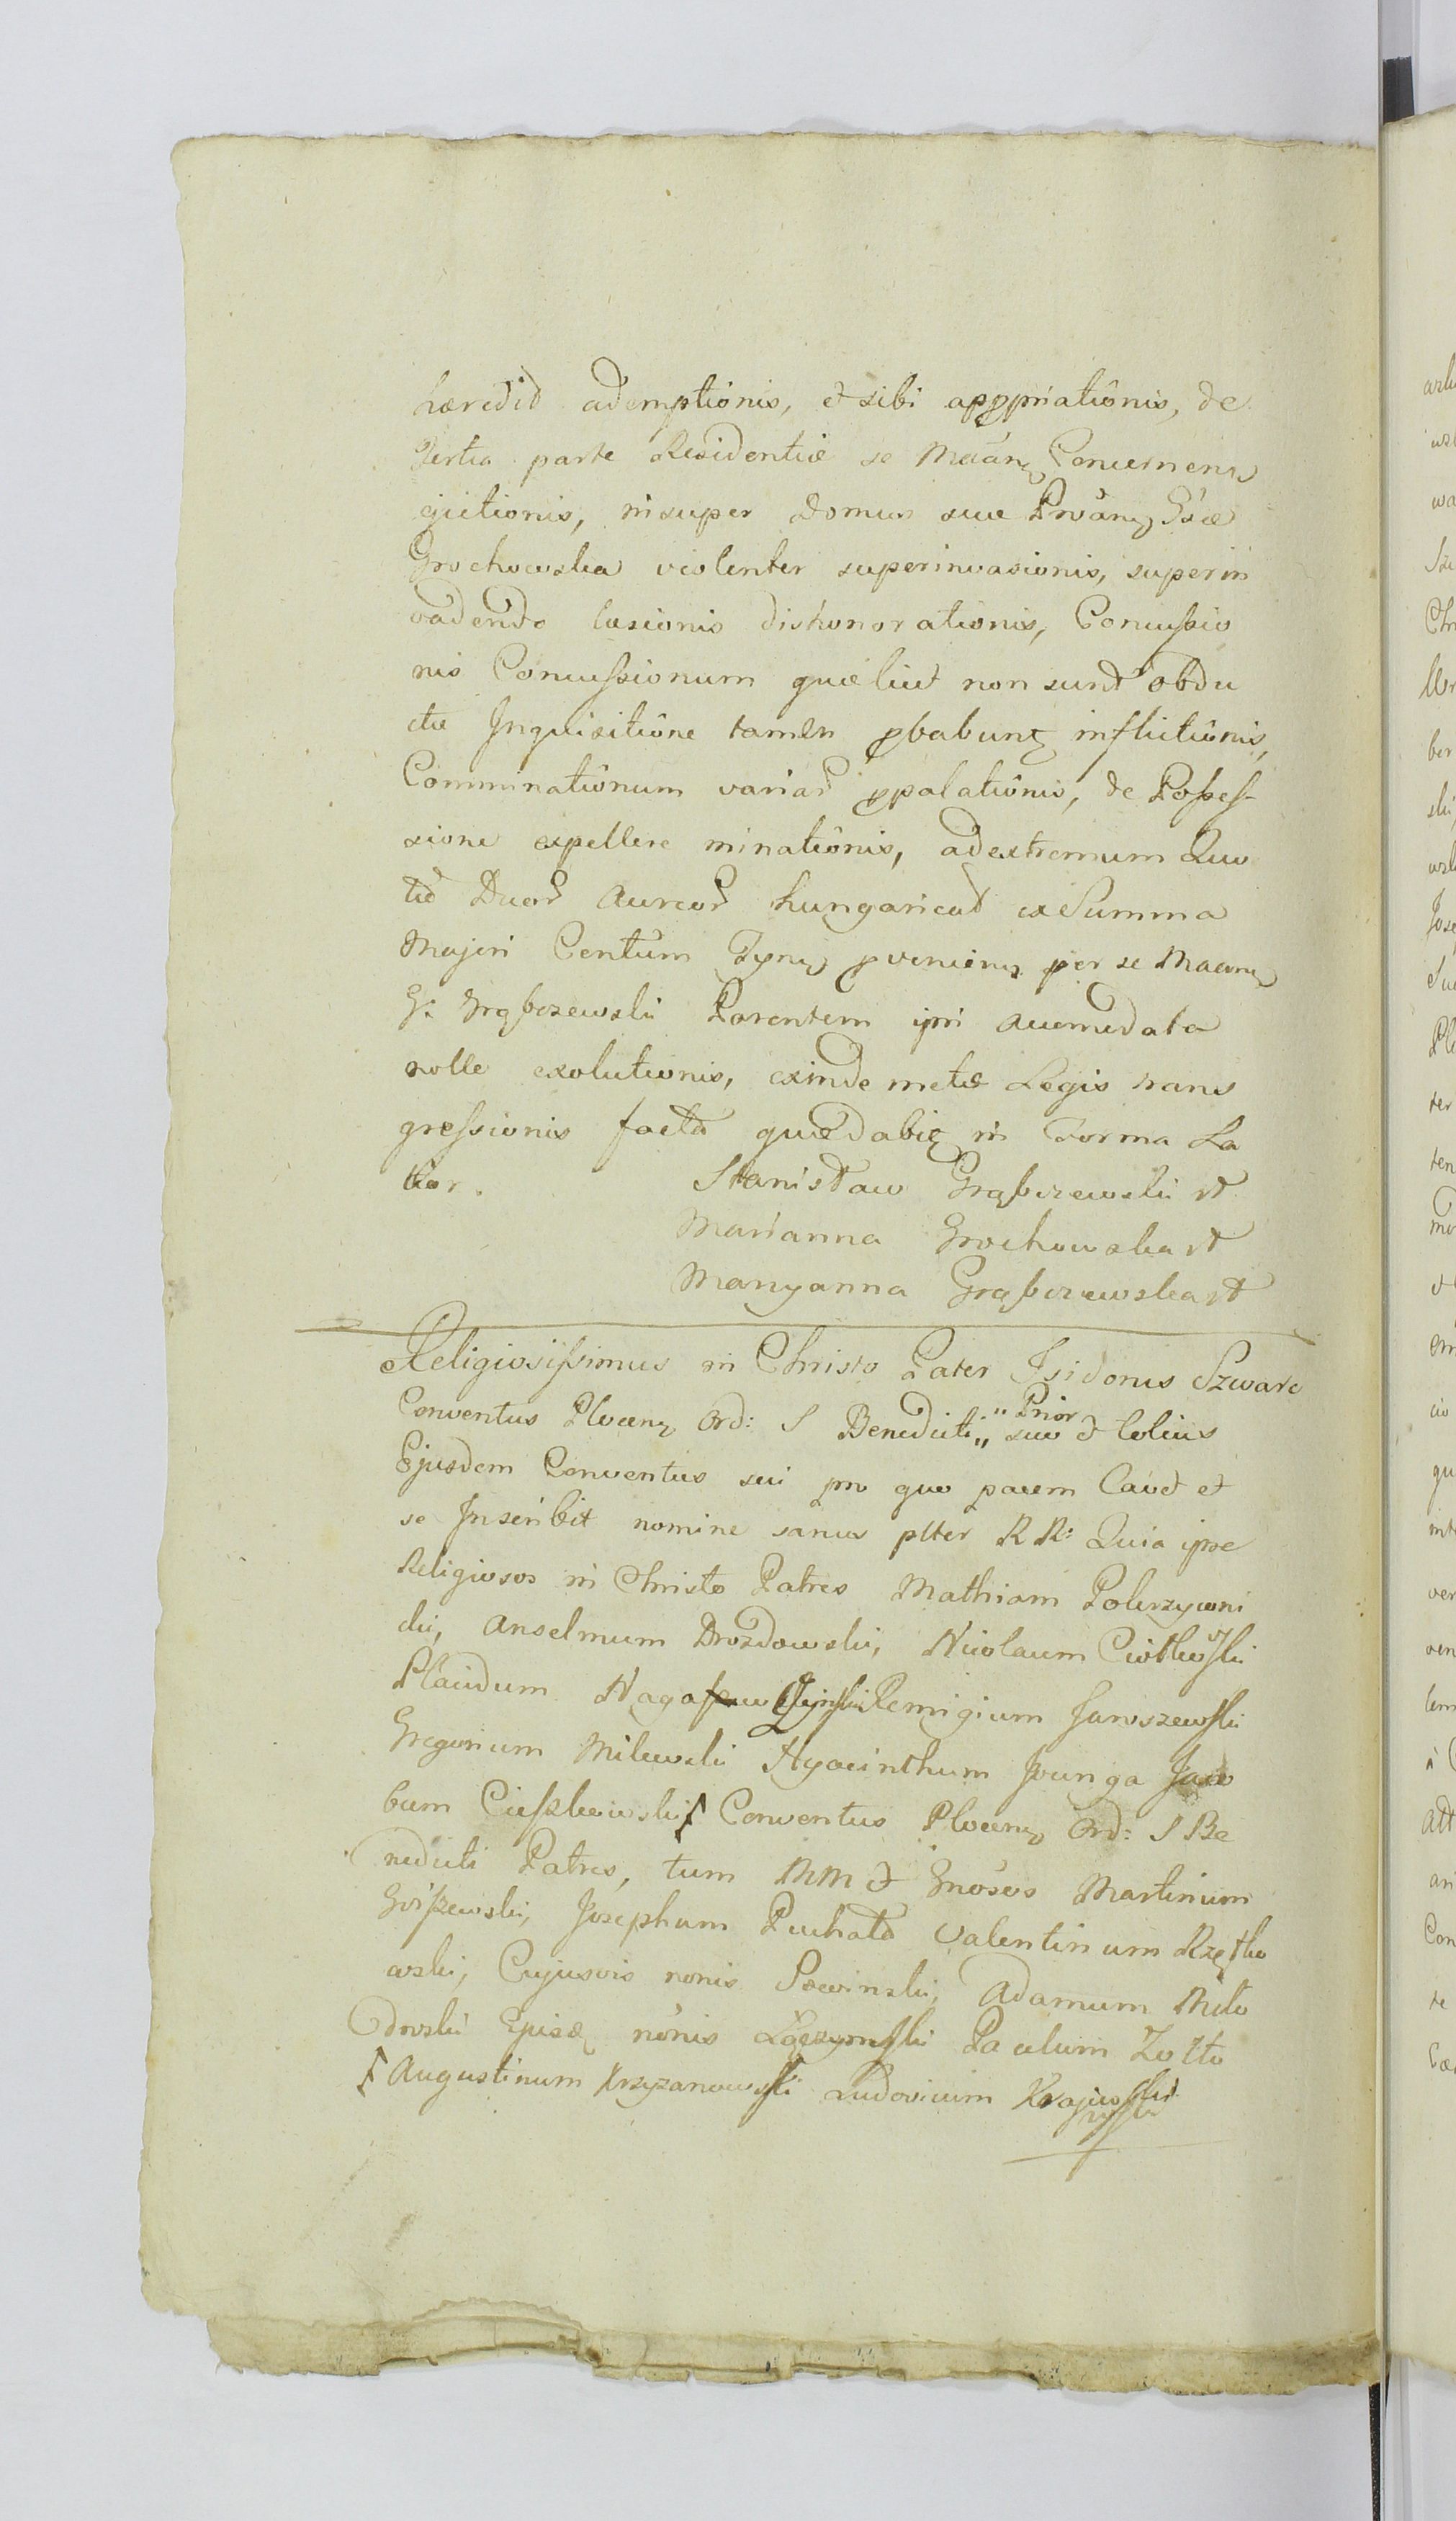 hæredit ademptionis, et sibi appropriationis, de
Tertia parte Residentiæ se Maãnę Concernens
ejectionis, insuper Domus suæ Prvãnę Gsæ
Grochowska violenter superinvasionis, superin
vadendo læsionis dishonorationis, Concussio
nis Concussionum quæ licet non sunt obdu
ctæ Inquisitiõne tamen pbabunt inflictiõnis,
Comminatiõnum variar ppalatiõnis, de Posses-
sione expellere minatiõnis, ad extremum Quo
tæ Duor Aureor hungaricał ex Summa
Majori Centum Tynę pvenienę per se Maanę
G: Grąbczewski Parentem ipsi accomodata
nolle exolutionis, exinde metæ Legis trans
gressionis facta quæ dabit in Forma La
tior. Stanisław Grąbczewski
Marianna Grochowska
Maryanna Grąbczewska
Religiosissimus in Christo Pater Isidorus Szwarc
Conventus Plocenę Ord: S Benedicti „ Prior „ suo et totius
Ejusdem Conventus sui pro quo pacem Cavet et
se Inscribit nomine sanus plter RR: Quia ipse
Religiosos in Christo Patres Mathiam Pokrzywni
cki, Anselmum Drozdowski, Nicolaum Ciotkowski
Placidum Remigium Jaroszewski
Gregorium Milewski Hyacinthum Jaco
bum Conventus Plocenę Ord: S Be
nedicti Patres, tum MM et Gnõsos Martinum
Goiszewski, Josephum Puchała Valentinum Rzętko
wski, Cujusvis nonis Szwinski, Adamum Młto
drowski Ejusę nõnis Łączynski Paulum Zołto
Augustinum Krzyzanowski Ludovicum Krajewski